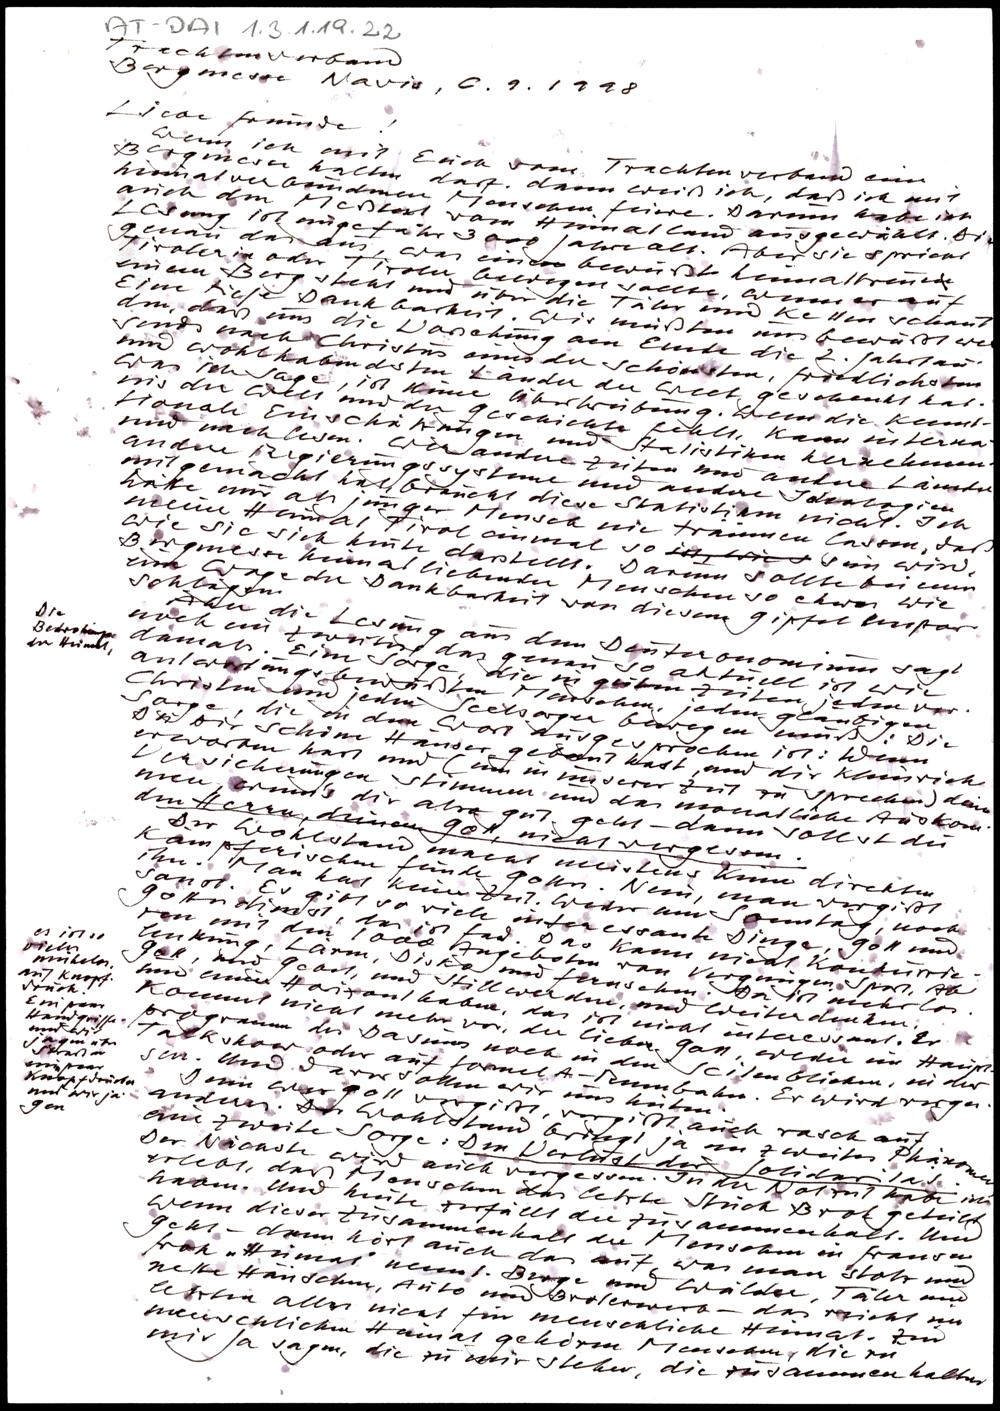 AT-DAI 1.3.1.19.22
Trachtenverband
Bergmesse Navis, 6.9.1998
Liebe Freunde!
Wenn ich mit Euch vom Trachtenverband eine
Bergmesse halten darf, dann weiß ich, daß ich mit
heimatverbundenen Menschen feiere. Darum habe ich
auch den Meßtext vom Heimatland ausgewählt. Die
Lesung ist ungefähr 3000 Jahre alt. Aber sie spricht
genau das aus, was einen bewußt heimattreuen
Tiroler in oder Tiroler bewegen sollte, wenn er auf
einem Berg steht und über die Täler und Ketten schaut
Eine tiefe Dankbarkeit. Wir müßten uns bewußt wer
den, daß uns die Vorsehung am Ende des 2. Jahrtau
sends nach Christus eines der schönsten, friedlichsten
und wohlhabendsten Länder der Welt geschenkt hat.
Was ich sage, ist keine Übertreibung. Wem die Kennt-
nis der Welt und der Geschichte fehlt, kann interna-
tionale Einschätzungen und Statistiken hernehmen
und nachlesen. Wer andere Zeiten und andere Länder
andere Regierungssysteme und andere Ideologien
mitgemacht hat, braucht diese Statistiken nicht. Ich
hätte mir als junger Mensch nie träumen lassen, daß
meine Heimat Tirol einmal so sein wird,
wie sie sich heute darstellt. Darum sollte bei einer
Bergmesse heimatliebender Menschen so etwas wie
eine Woge der Dankbarkeit von diesem Gipfel empor
schlagen.
Die
Bedrohung
der Heimat,
Aber die Lesung aus dem Deuteronomium sagt
noch ein Zweites, das genau so aktuell ist wie
damals. Eine Sorge, die in guten Zeiten jeden ver-
antwortungsbewußten Menschen, jeden gläubigen
Christen und jeden Seelsorger bewegen muß: Die
Sorge, die in dem Wort ausgesprochen ist: Wenn
Du Dir schöne Häuser gebaut hast, und dir Reich
erworben hast und (um in unserer Zeit zu sprechen) deine
Versicherungen stimmen und das monatliche Auskom-
men, wenns dir also gut geht – dann sollst du
den Herrn, deinen Gott, nicht vergessen.
Der Wohlstand macht meistens keine direkten
kämpferischen Feinde Gottes. Nein, man vergißt
ihn. Man hat keine Zeit. Weder am Sonntag, noch
sonst. Es gibt so viele interessante Dinge, Gott und
Gottesdienst, das ist fad. Das kann nicht konkurrie-
ren mit den 1000 Angeboten von Vergnügen, Sport, Ab
lenkung, Lärm, Disko und Fernsehen. Da ist mehr los.
es ist so
vieles
mühelos,
auf Knopf-
druck.
Ein paar
Handgriffe
und wir
sagen
ein paar
Knopfdrücke
und wir ja
gen
Gott, und Gebet, und Stillwerden, und Weiterdenken,
und einen Horizont haben, das ist nicht interessant. Er
kommt nicht mehr vor, der liebe Gott, weder im Haupt-
programm des Daseins noch in den Seitenblicken, in der
Talkshow oder auf Formel A-Rennbahn. Er wird verges-
sen. Und davor sollen wir uns hüten.
Denn wer Gott vergißt, vergißt auch rasch auf
anderes. Der Wohlstand bringt ja ein zweites Phänomen
eine zweite Sorge: Der Verlust der Solidarität.
Der Nächste wird auch vergessen. In der Notzeit habe ich
erlebt, daß Menschen das letzte Stück Brot geteilt
haben. Und heute zerfällt der Zusammenhalt. Und
wenn dieser Zusammenhalt der Menschen in Fransen
geht – dann hört auch das auf, was man stolz und
froh "Heimat" nennt. Berge und Wälder, Täler und
nette Häuschen, Auto und Broterwerb – das reicht im
letzten alles nicht für menschliche Heimat. Zur
menschlichen Heimat gehören Menschen, die zu
mir Ja sagen, die zu mir stehen, die zusammenhalten